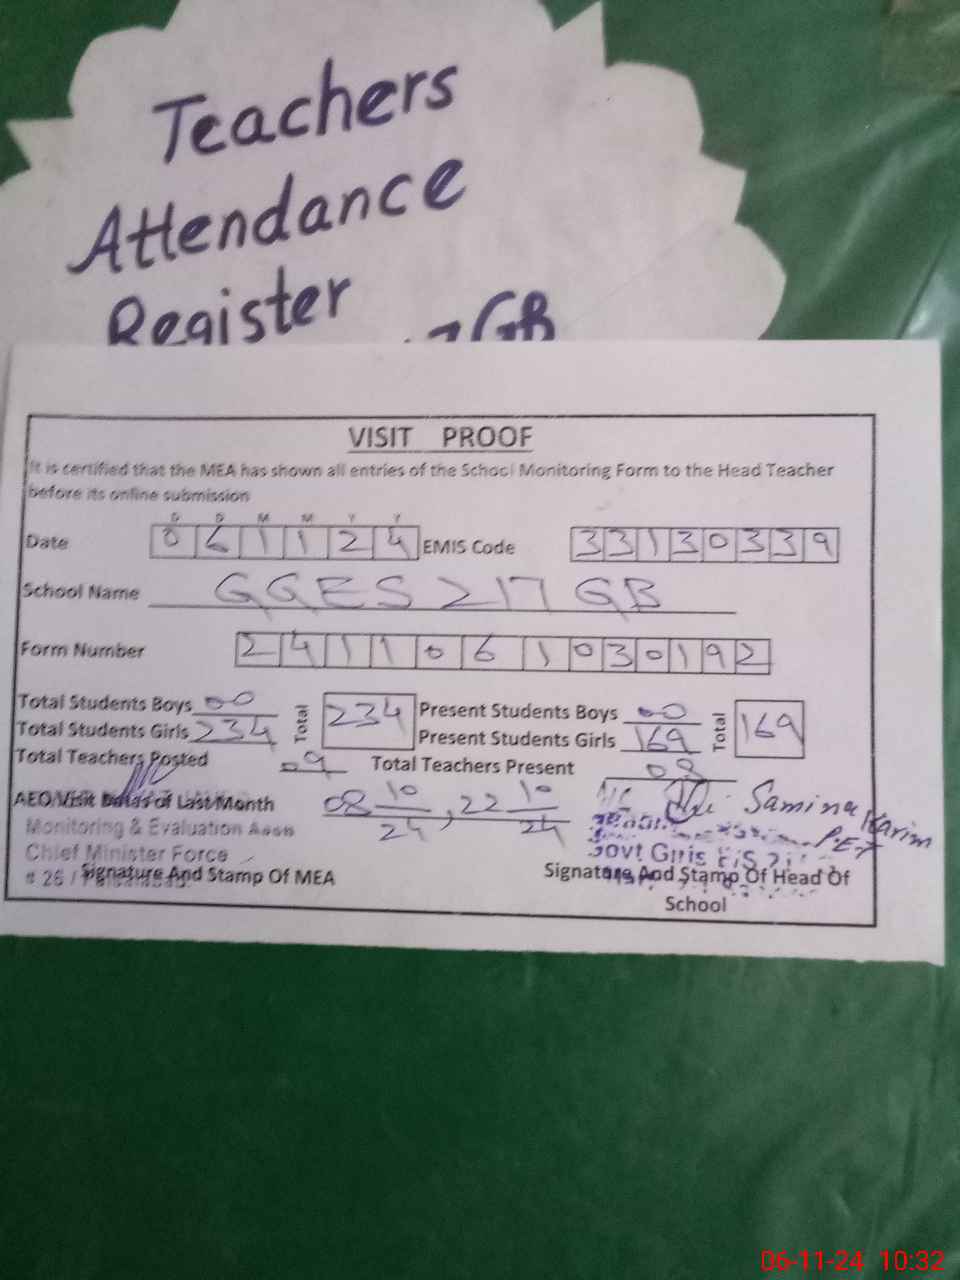 Teachers
Attendance
Register
GB
VISIT PROOF
It is certified that the MEA has shown all entries of the School Monitoring Form to the Head Teacher
before its online submission
D D M M Y Y
Date 0 6 1 1 2 4 EMIS Code 3 3 1 3 0 3 3 9
School Name GGES 217 GB
Form Number 2 4 1 1 0 6 1 0 3 0 1 9 2
Total Students Boys 00 Total 234 Present Students Boys 00 Total 169
Total Students Girls 234 Present Students Girls 169
Total Teachers Posted 09 Total Teachers Present 08
AEO Visit Dates of Last Month 08 10/24, 22 10/24 Samina Karim
P.E.T
Monitoring & Evaluation Assn
Chief Minister Force
# 26 /
Govt Girls E/S
Signature And Stamp Of MEA Signature And Stamp Of Head Of
School
06-11-24 10:32